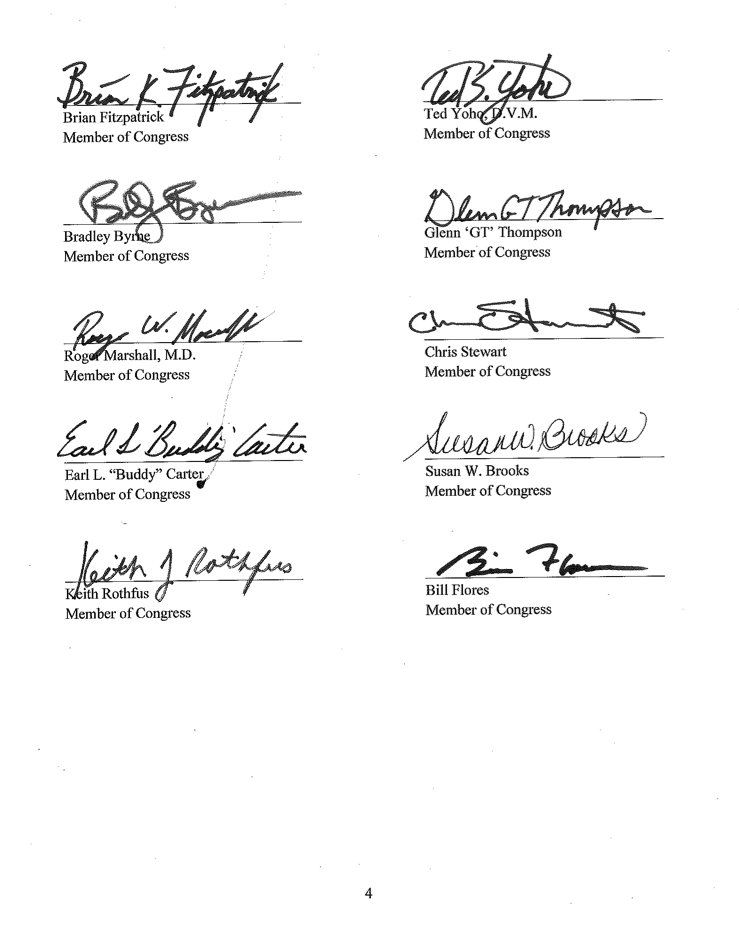 Brian K. Fitzpatrick
Brian Fitzpatrick
Member of Congress
Ted S. Yoho
Ted Yoho, D.V.M.
Member of Congress
Bradley Byrne
Member of Congress
Glenn GT Thompson
Glenn ‘GT’ Thompson
Member of Congress
Roger W. Marshall
Roger Marshall, M.D.
Member of Congress
Chris Stewart
Chris Stewart
Member of Congress
Earl L "Buddy" Carter
Earl L. “Buddy” Carter
Member of Congress
Susan W. Brooks
Susan W. Brooks
Member of Congress
Keith J Rothfus
Keith Rothfus
Member of Congress
Bill Flores
Bill Flores
Member of Congress
4